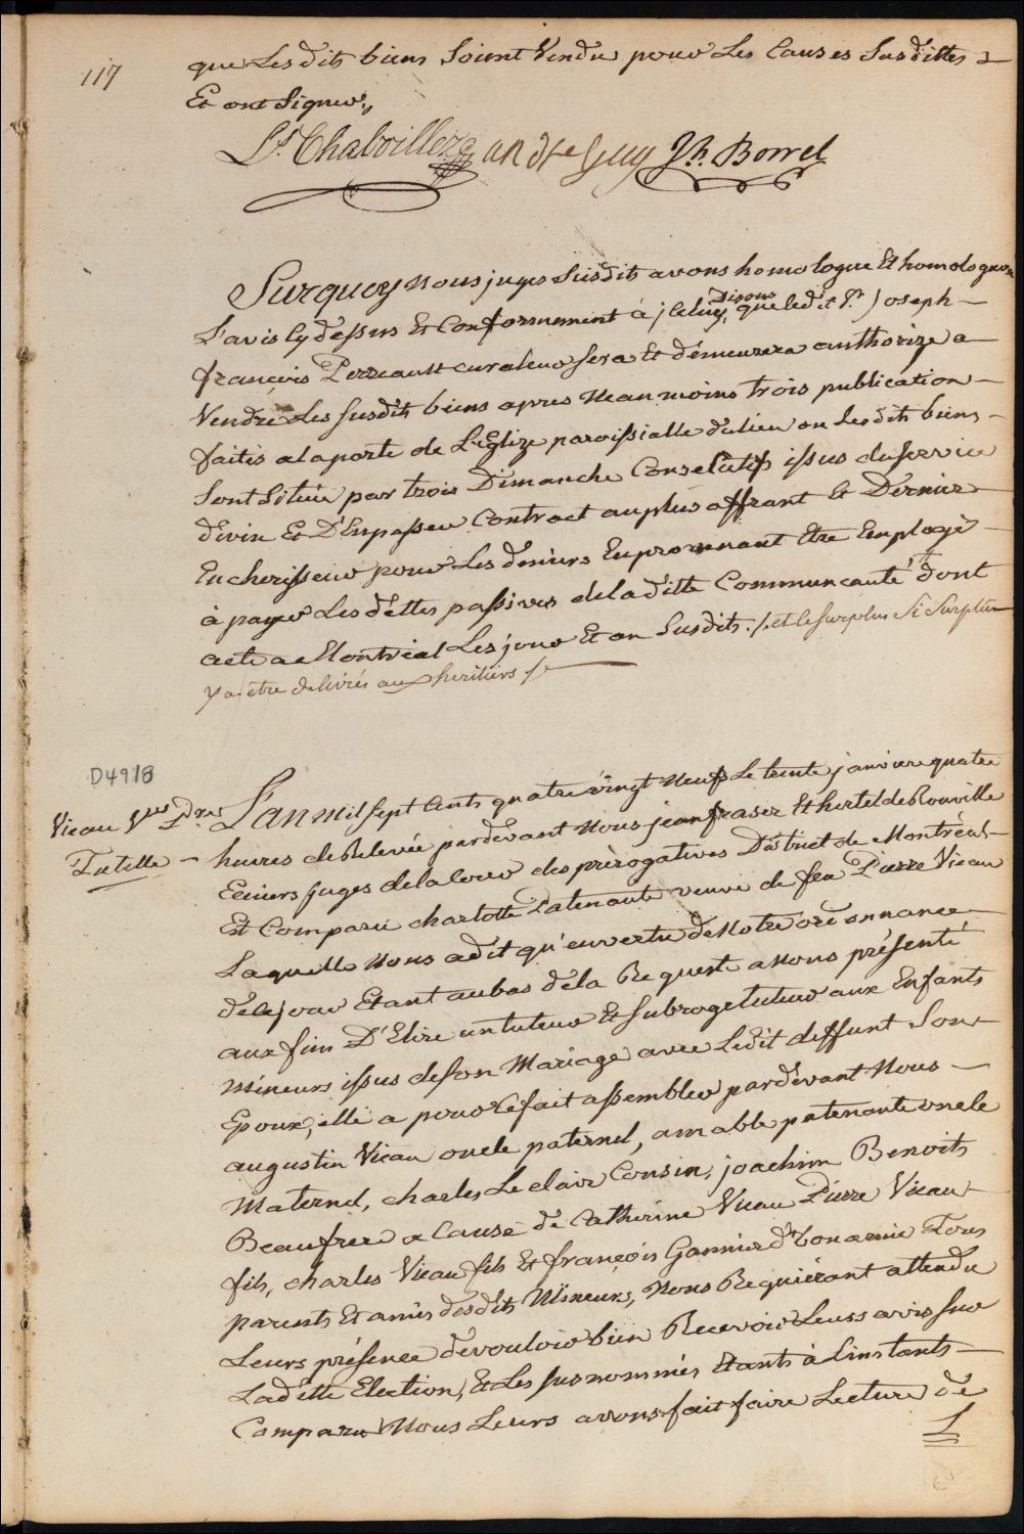 117
que Les dits biens Soient Vendu pour Les Causes Susdittes
Et ont Signer,,
Ls. Chaboillez andre Guy Jh. Borrel
Surquoy nous juges Susdits avons homologue Et homologuons
L'avis Cy dessus Et Conformement à jCeluy, disons que ledit Sr. Joseph
françois Perreault curateur sera Et démeurera authorize a
Vendre Les susdits biens apres Neanmoins trois publication
faites a la porte de L'Eglize paroissialle du lieu ou Les dits biens
Sont Situés par trois Dimanche Consecutifs issus du service
divin Et D'En passer Contract au plus offrant Et Dernier
Encherisseur pour Les deniers En provenant Etre Employé
à payer Les dettes passives de la ditte Communeauté dont
acte a Montreal Les jour Et an Susdits ./. et le surplus Si Surplus
y a etre delivrés aux heritiers ./.
D4918
Vieau Vve
Tutelle
L'an Mil sept Cents quatre vingt Neuf Le trente janvier quatre
heures de Relevée pardevant Nous jean fraser Et hertel de Rouville
Ecuiers juges de la Cour des prèrogatives District de Montréal
Est Comparu charlotte Patenaute veuve de feu Pierre Vieau
Laquelle Nous a dit qu'en vertu de Notre ordonnance
de Ce jour Etant au bas de la Requeste a Nous présenté
aux fins D'Elire un tuteur Et Subroge tuteur aux Enfants
Mineurs issus de son Mariage avec Ledit deffunt Son
Epoux, elle a pour Ce fait assembler pardevant Nous
augustin Vieau oncle paternel, amable patenaute oncle
Maternel, charles Le clair Cousin, joachim Benoits
Beaufrere a Cause de Catherine Vieau Pierre Vieau
fils, charles Vieau fils Et françois Garnier Tous
parents Et amis desdits Mineurs, Nous Requièrant attendu
Leurs présence de vouloir bien Recevoir Leurs avis sur
Laditte Election, Et Les susnommés Etants à L'instants
Comparu Nous Leurs avons fait faire Lecture de